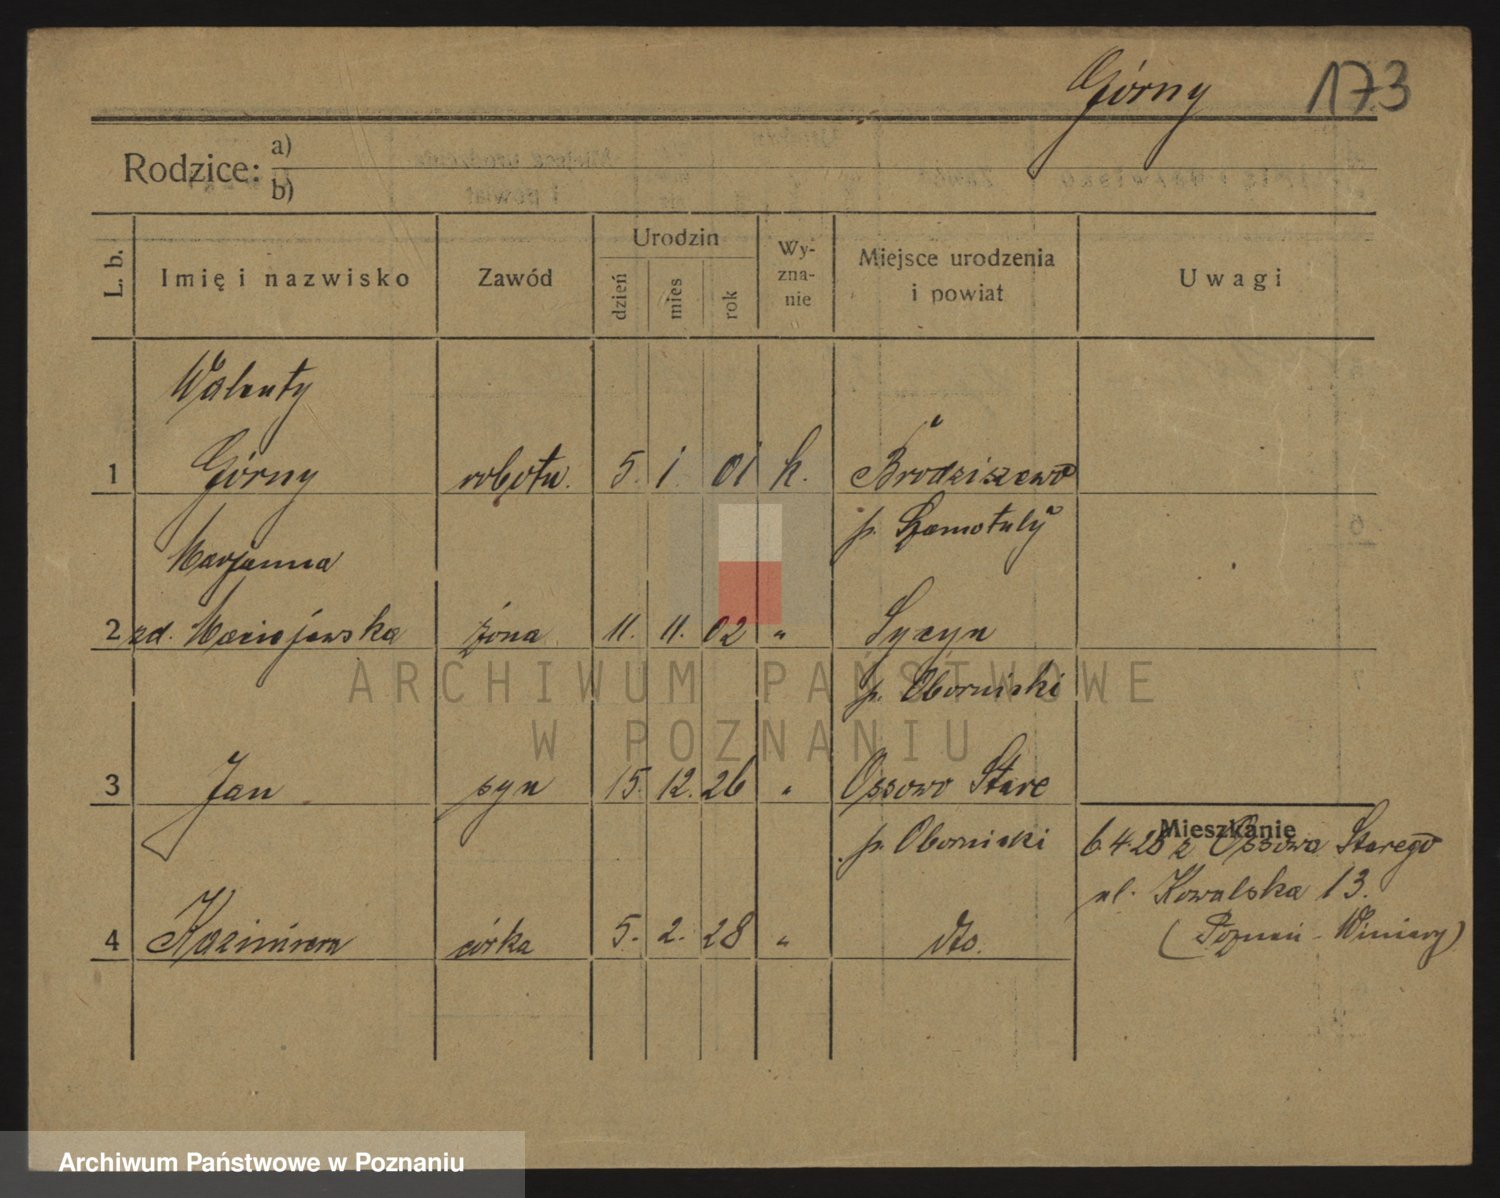 Górny 173
Rodzice: a)
b)
L. b. Imię i nazwisko Zawód Urodzin dzień mies rok Wy-zna-nie Miejsce urodzenia i powiat Uwagi
Walenty
1 Górny robotn. 5. 1 01 k. Brodziszewo
p. Szamotuly
Marjanna
2 zd. Maciejewska żona 11. 11. 02 " Sycyn
p. Obornicki
3 Jan syn 15. 12. 26 " Ossowo Stare
Mieszkanie
p. Obornicki 6.4.28 z Ossowa Starego
ul. Kowalska 13.
4 Kazimiera córka 5. 2. 28 " dto. (Poznań - Winiary)
ARCHIWUM PAŃSTWOWE
W POZNANIU
Archiwum Państwowe w Poznaniu